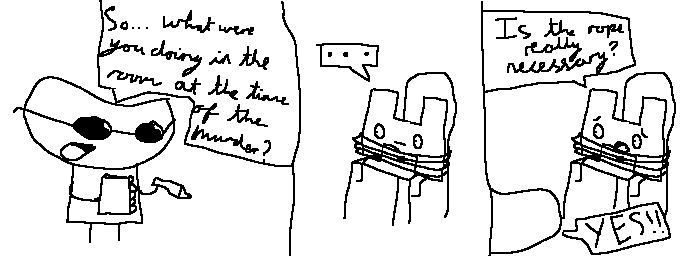 So... what were
you doing in the
room at the time
of the
murder?
...
Is the rope
really
necessary?
YES!!